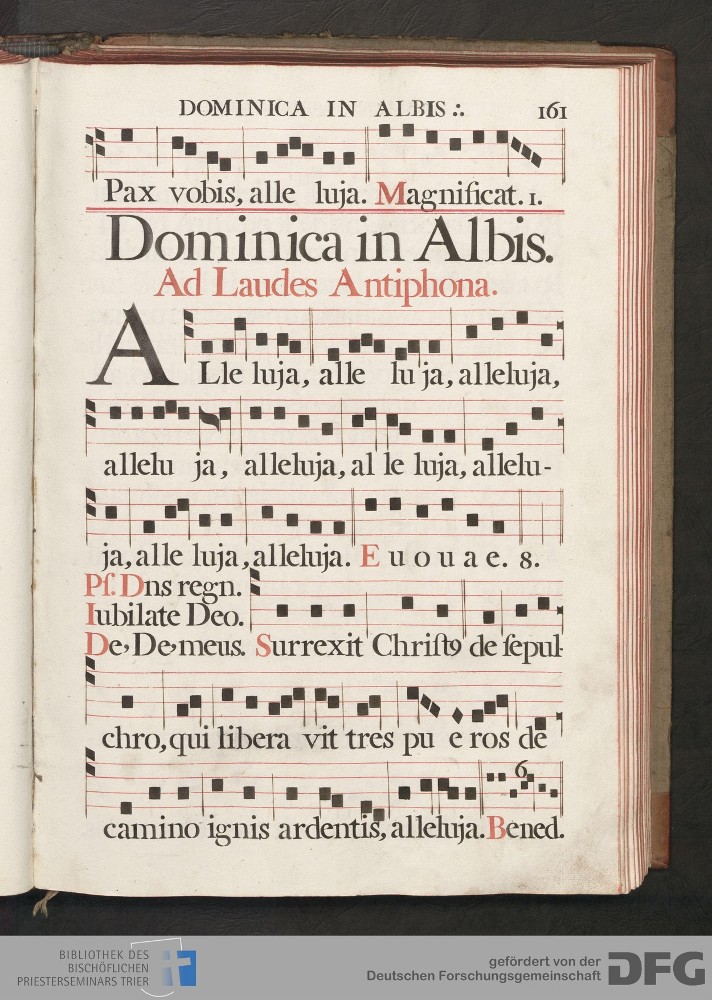 DOMINICA IN ALBIS ∴ 161
Pax vobis, alle luja. Magnificat. 1.
Dominica in Albis.
Ad Laudes Antiphona.
A Lle luja, alle lu ja, alleluja,
allelu ja, alleluja, al le luja, allelu-
ja, alle luja, alleluja. E u o u a e. 8.
Pſ. Dns regn.
Iubilate Deo.
De, De, meus. Surrexit Chriſtꝰ de ſepul-
chro, qui libera vit tres pu e ros de
6
camino ignis ardentis, alleluja. Bened.
BIBLIOTHEK DES
BISCHÖFLICHEN
PRIESTERSEMINARS TRIER
gefördert von der
Deutschen Forschungsgemeinschaft DFG